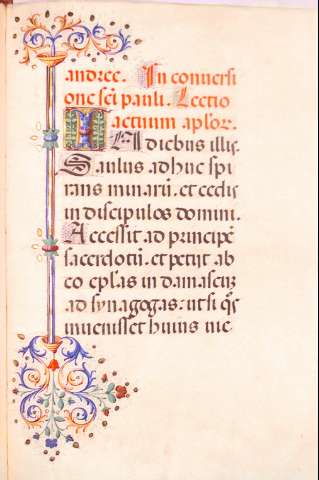 andree. In conversi
one scī pauli. Lectio
actuum aplor.
IN diebus illis
Saulus adhuc spi
rans minarū. et cedis
in discipulos domini.
Accessit ad principē
sacerdotū. et petijt ab
eo eplas in damascū
ad synagogas: ut si qs̄
invenisset huius vie